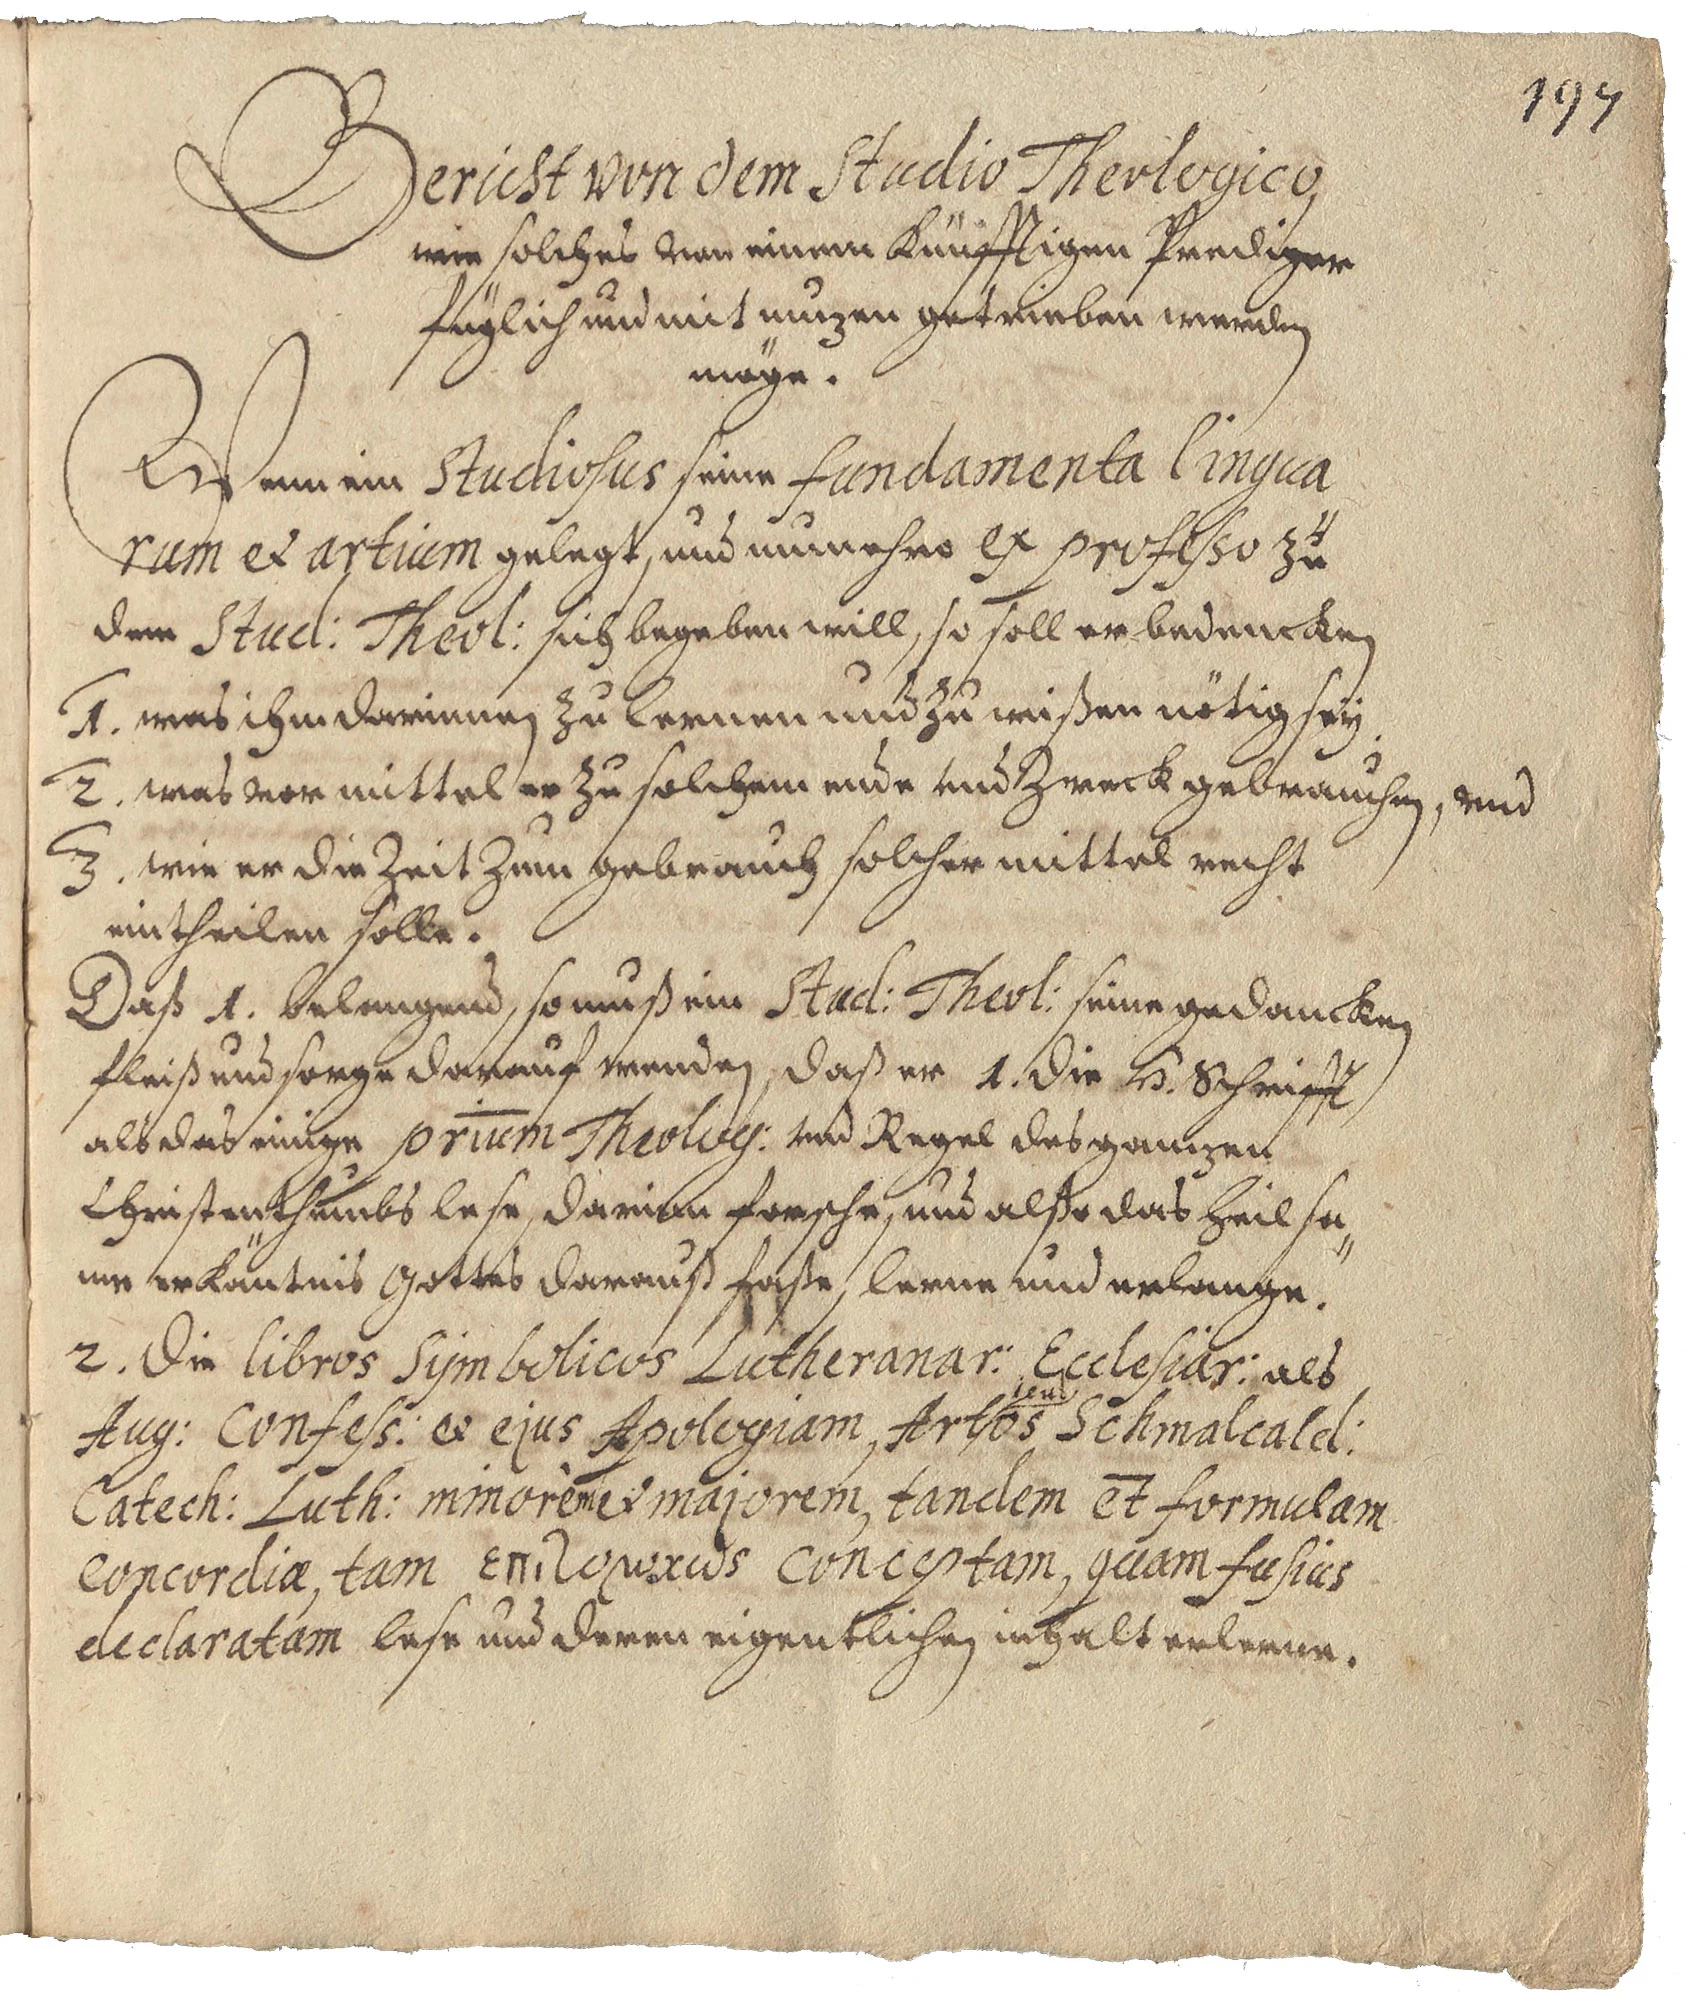 197
Bericht von dem Studio Theologico,
wie solches von einem künfftigen Prediger
füglich und mit nuzen getrieben werden
möge.
Wenn ein Studiosus seine fundamenta lingua
rum et artium gelegt, und nunmehro ex professo zu
dem Stud: Theol: sich begeben will, so soll er bedencken
1. was ihm darinnen zu lernen und zu wißen nötig sey.
2. was vor mittel er zu solchem ende und Zweck gebrauchen, und
3. wie er die Zeit zum gebrauch solcher mittel recht
eintheilen solle.
Daß 1. belangend, so muß ein Stud: Theol: seine gedancken
fleiß und sorge darauf wenden, daß er 1. die H. Schrifft
als das einige prium Theolog: und Regel des ganzen
Christenthumbs lese, darinn forsche, und alßo das heilsa„
me erkäntnis Gottes darauß faße, lerne und erlange.
2. Die libros Symbolicos Lutheranar: Ecclesiar: als
Aug: Confess: et ejus Apologiam, Artlos Schmalcald:
Catech: Luth: minorem et majorem, tandem et formulam
Concordiæ, tam conceptam, quam fusius
declaratam lese und deren eigentlichen inhalt erlerne.